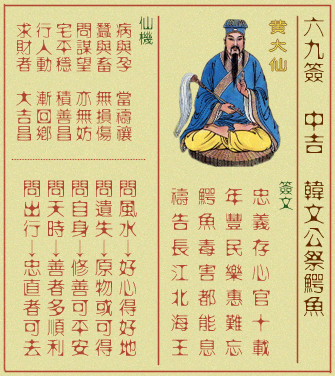 六九簽 中吉 韓文公祭鱷魚
黃大仙
簽文
忠義存心官十載
年豐民樂惠難忘
鱷魚毒害都能息
禱告長江北海王
仙機
病與孕 當禱禳
蠶與畜 無損傷
問謀望 亦無妨
宅平穩 積善昌
行人動 漸回鄉
求財者 大吉昌
問風水↓好心得好地
問遺失↓原物或可得
問自身↓修善可平安
問天時↓善者多順利
問出行↓忠直者可去